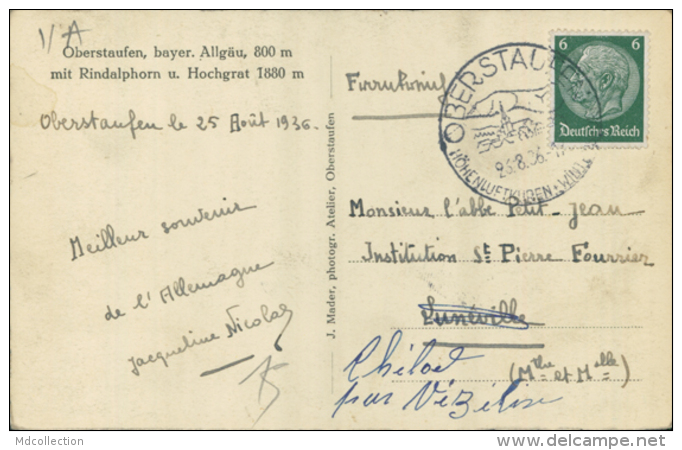 1/A
Oberstaufen, bayer. Allgäu, 800 m
mit Rindalphorn u. Hochgrat 1880 m
Oberstaufen le 25 Août 1936.
Meilleur souvenir
de l'Allemagne
Jacqueline Nicolas
J. Mader, photogr. Atelier, Oberstaufen
OBERSTAUFEN
26.8.36
HÖHENLUFTKUREN
6 6
Deutsches Reich
Monsieur l'abbé Petit-Jean
Institution St Pierre Fourrier
Lunéville
(Mthe et Melle)
par Vézelise
Mdcollection
www.delcampe.net